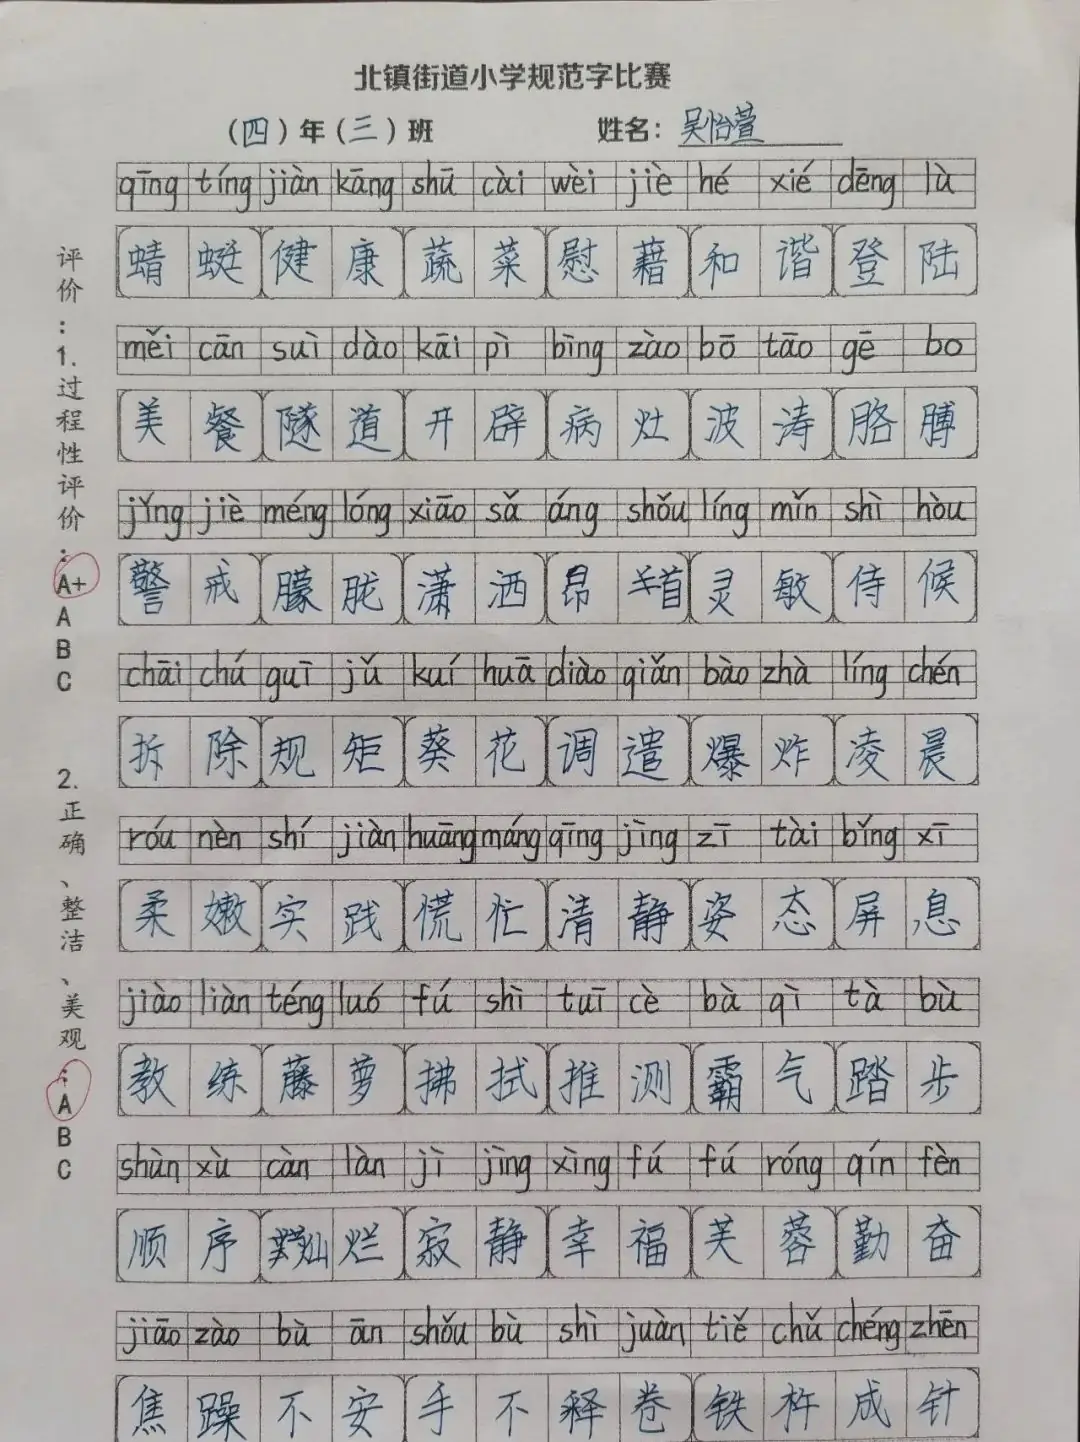 北镇街道小学规范字比赛
（四）年（三）班 姓名：吴怡萱
qīng tíng jiàn kāng shū cài wèi jiè hé xié dēng lù
蜻蜓健康蔬菜慰藉和谐登陆
měi cān suì dào kāi pì bìng zào bō tāo gē bo
美餐隧道开辟病灶波涛胳膊
jǐng jiè méng lóng xiāo sǎ áng shǒu líng mǐn shì hòu
警戒朦胧潇洒昂首灵敏侍候
chāi chú guī jǔ kuí huā diào qiǎn bào zhà líng chén
拆除规矩葵花调遣爆炸凌晨
róu nèn shí jiàn huāng máng qīng jìng zī tài bǐng xī
柔嫩实践慌忙清静姿态屏息
jiào liàn téng luó fú shì tuī cè bà qì tà bù
教练藤萝拂拭推测霸气踏步
shùn xù càn làn jì jìng xìng fú fú róng qín fèn
顺序灿烂寂静幸福芙蓉勤奋
jiāo zào bù ān shǒu bù shì juàn tiě chǔ chéng zhēn
焦躁不安手不释卷铁杵成针
评价：1.过程性评价：A+ A B C
2.正确、整洁、美观：A B C